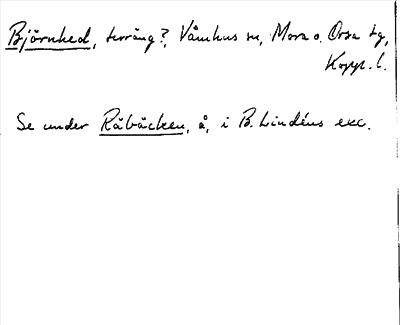 Björnhed, terräng?, Våmhus sn, Mora o. Orsa tg,
Kopp. l.
Se under Råbäcken, å, i B. Lindéns exc.